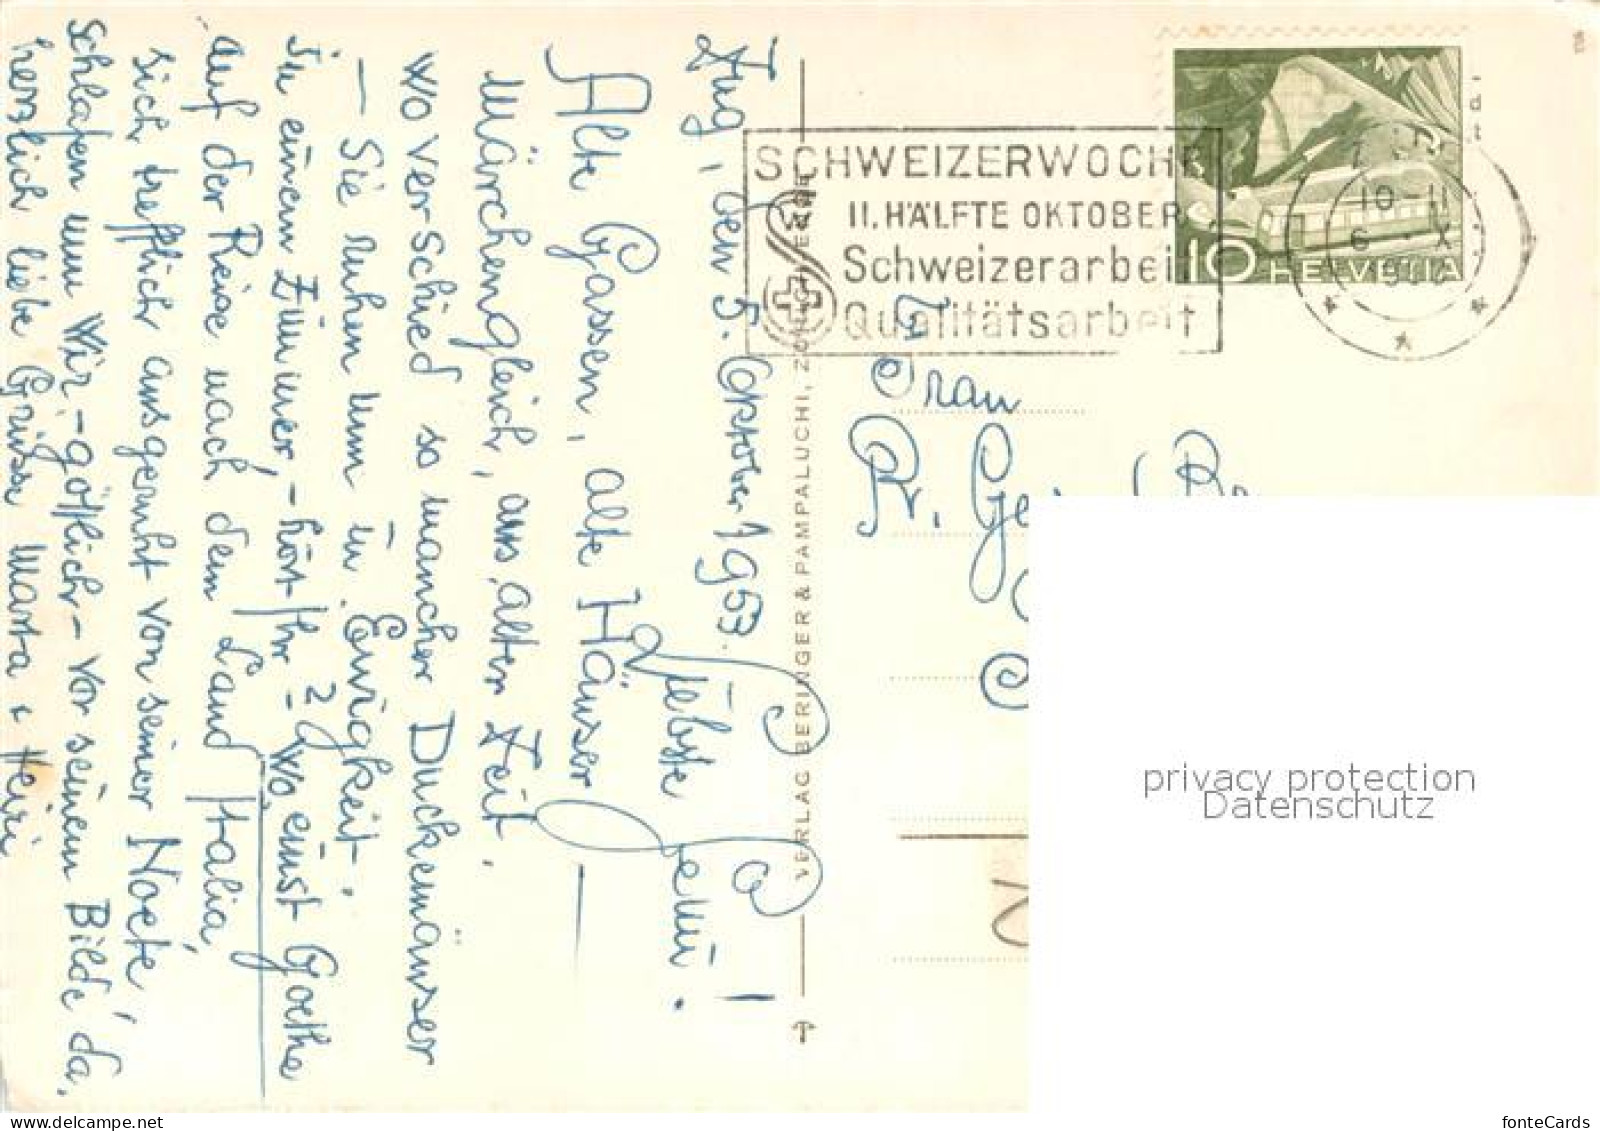 Zug, den 5. Oktober 1953.
Liebste Jenni!
Alte Gassen, alte Häuser
Märchengleich, aus alter Zeit,
wo verschied so mancher Duckmäuser
- Sie ruhen nun in Ewigkeit.
In einem Zimmer, - hört Ihr - wo einst Goethe
auf der Reise nach dem Land Italia,
sich trefflich ausgeruht von seiner Noete,
schlafen nun Wir, - göttlich - vor seinem Bilde da.
herzlich liebe Grüsse Marta & Heiri
VERLAG BERINGER & PAMPALUCHI, ZÜRICH
SCHWEIZERWOCHE
II. HÄLFTE OKTOBER
Schweizerarbeit
Qualitätsarbeit
10 HELVETIA
10-11
Frau
R.
privacy protection
Datenschutz
fonteCards